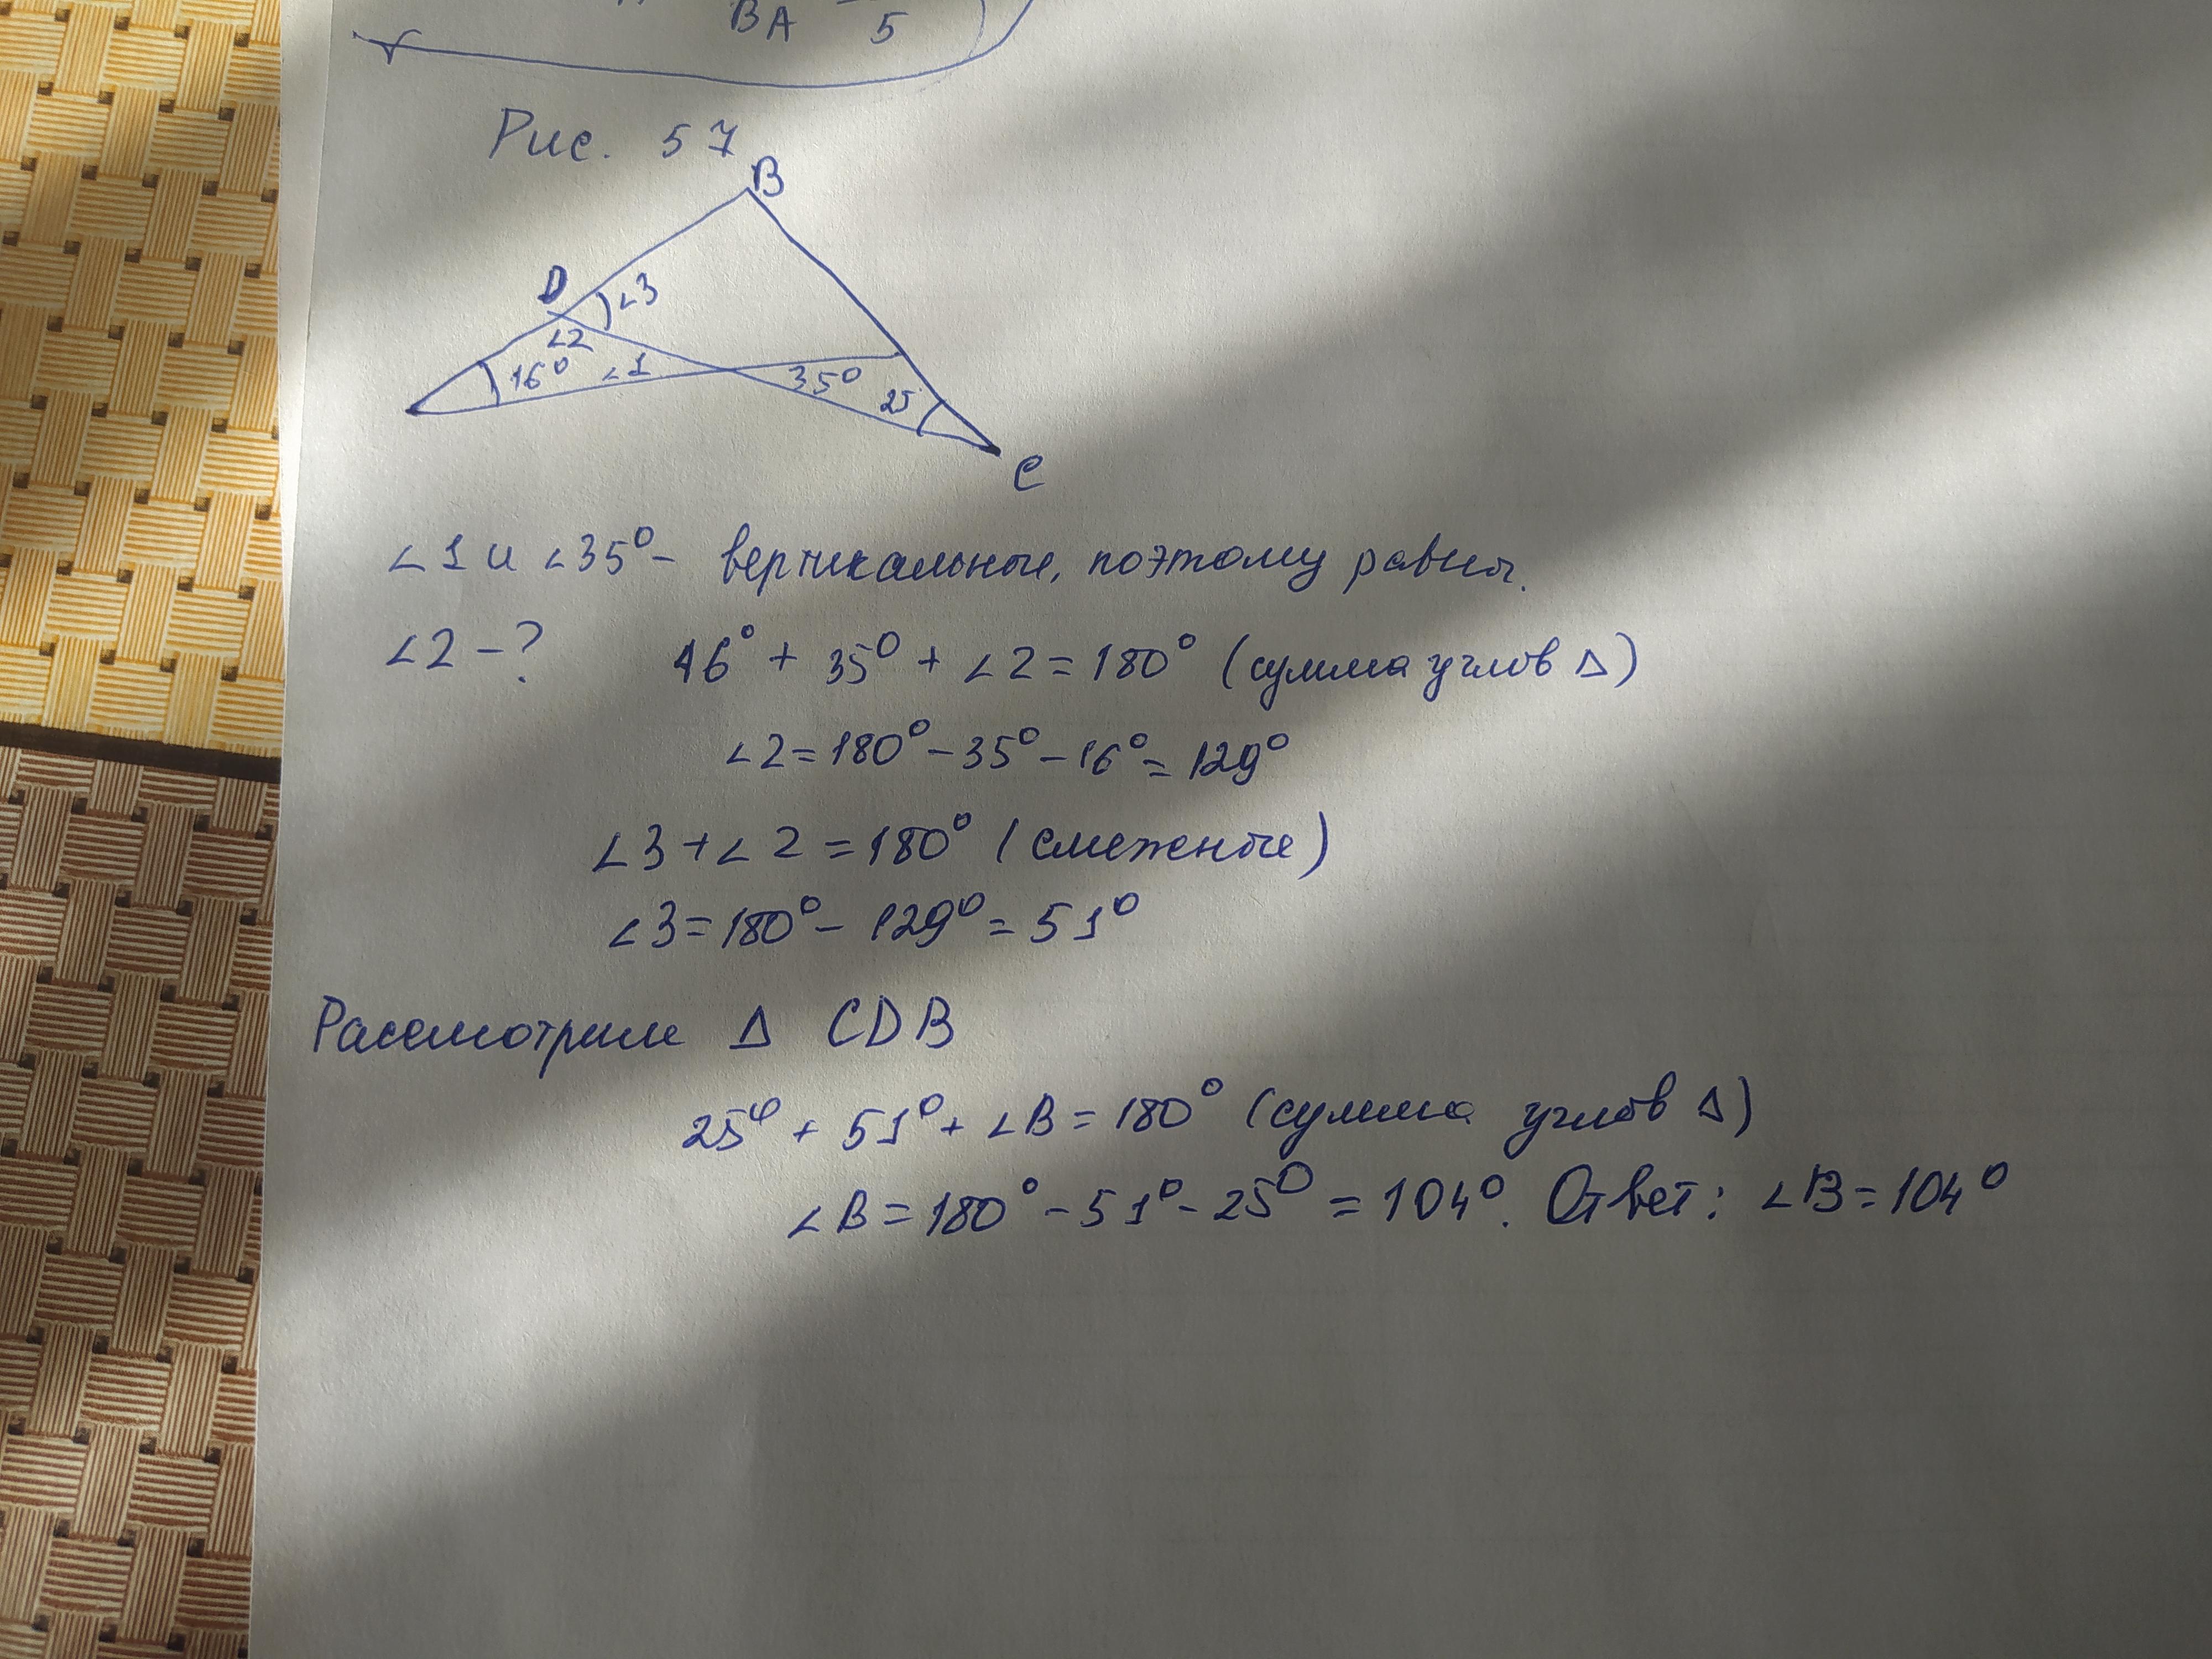 BA 5
Рис. 57
B
D ∠3
∠2
16° ∠1 35° 25
C
∠1 и ∠35° - вертикальные, поэтому равны.
∠2 - ? 16° + 35° + ∠2 = 180° (сумма углов Δ)
∠2 = 180° - 35° - 16° = 129°
∠3 + ∠2 = 180° (смежные)
∠3 = 180° - 129° = 51°
Рассмотрим Δ CDB
25° + 51° + ∠B = 180° (сумма углов Δ)
∠B = 180° - 51° - 25° = 104°. Ответ: ∠B = 104°